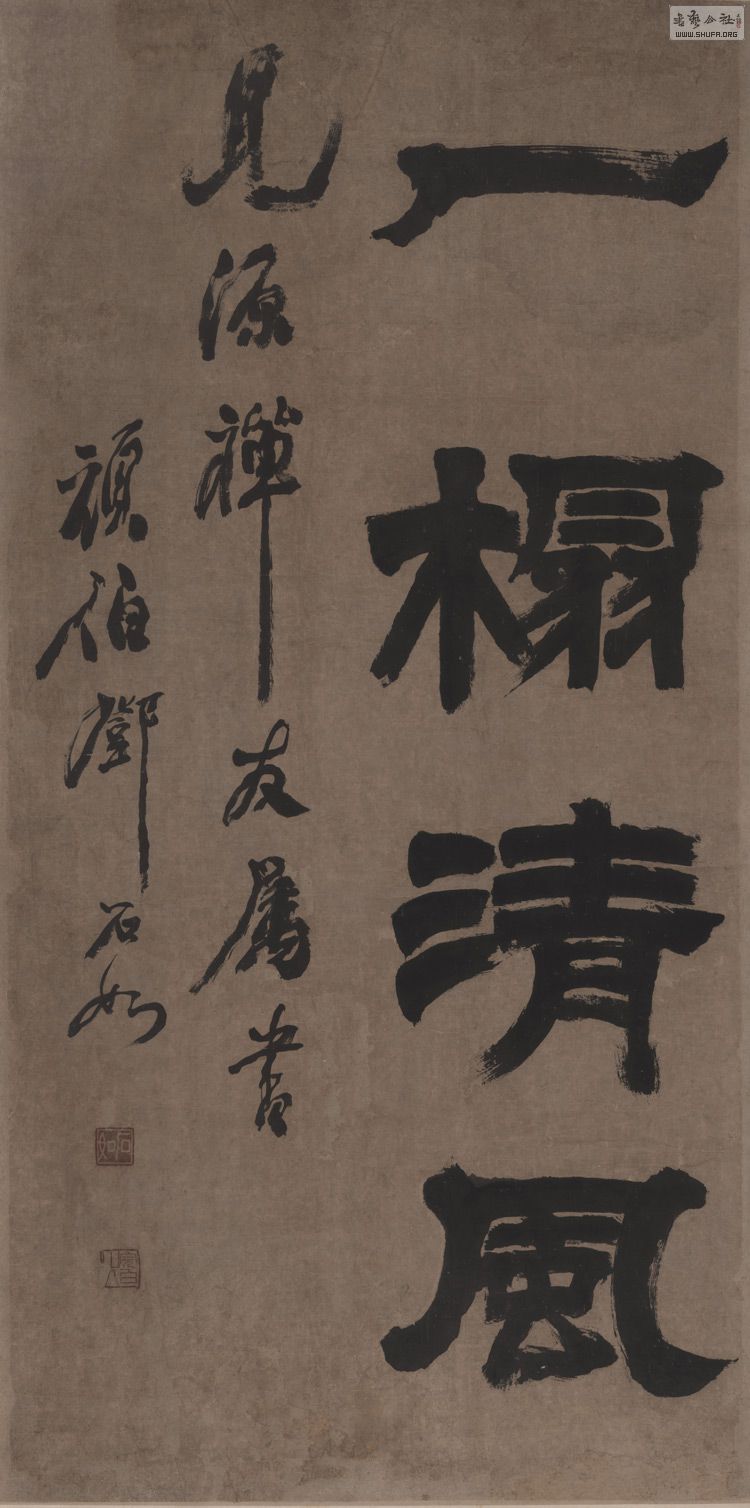 一榻清風
見源禪友属書
頑伯鄧石如
石如
書藝公社
WWW.SHUFA.ORG